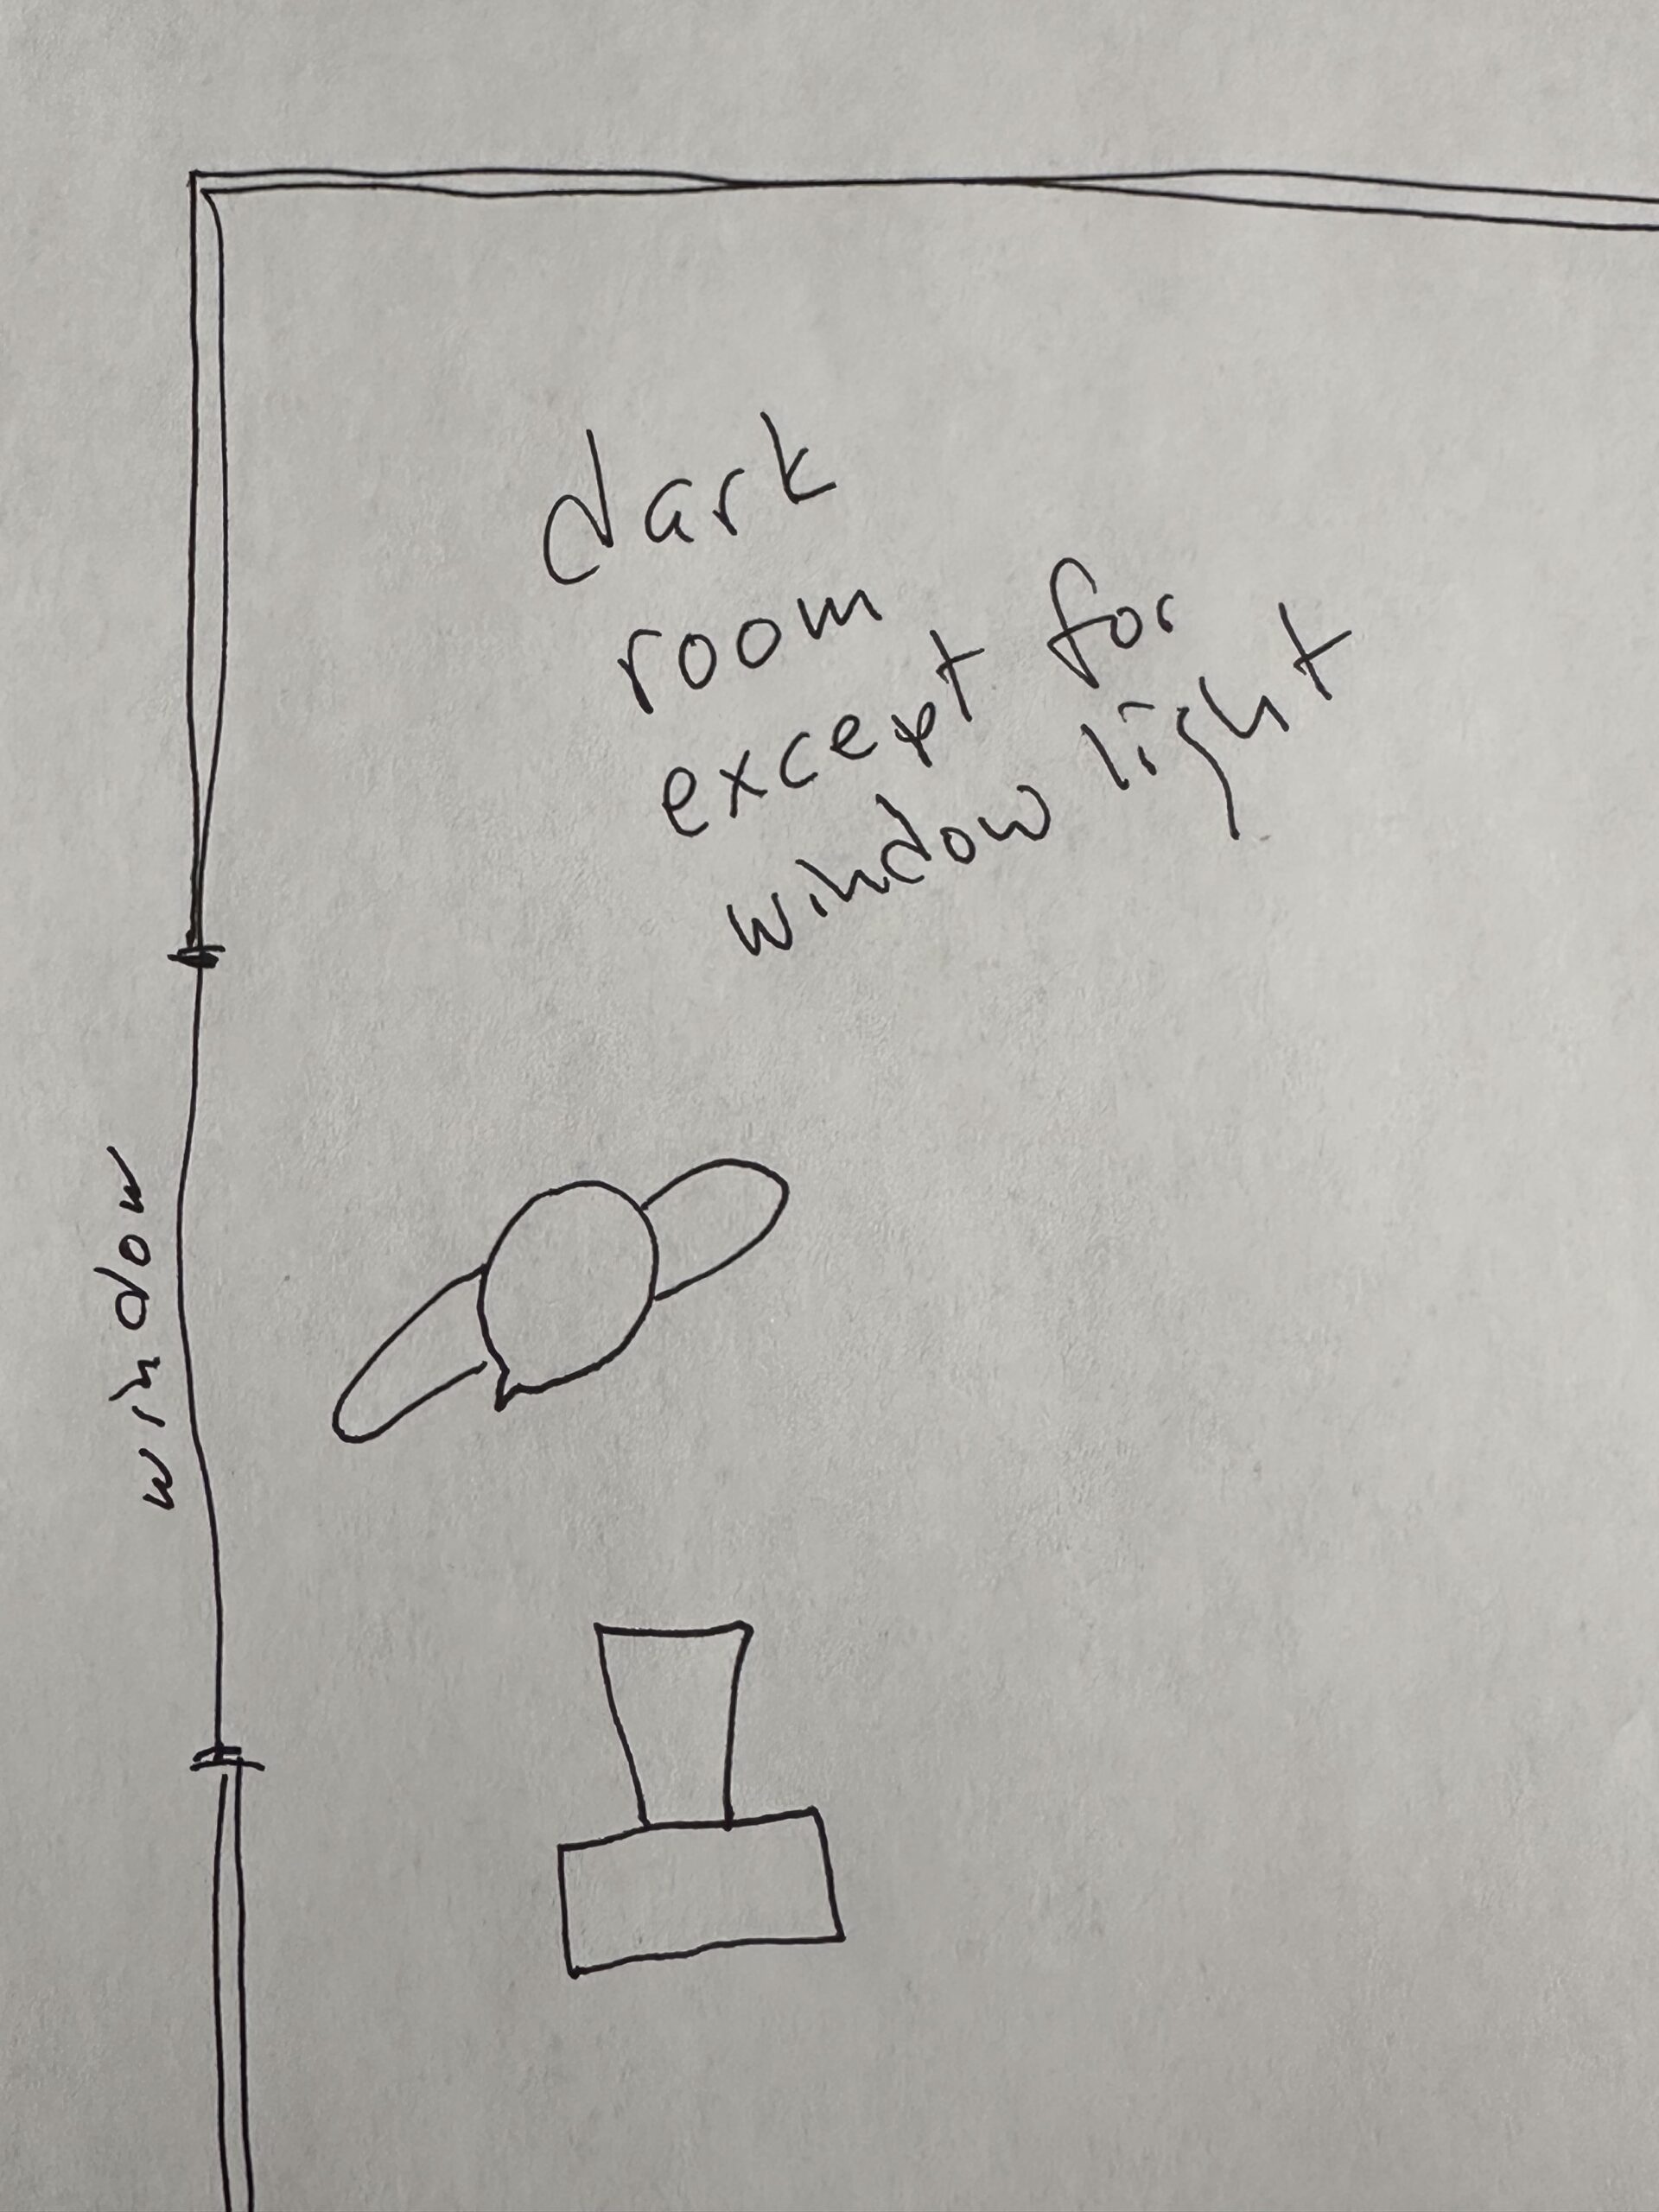 dark
room
except for
window light
window